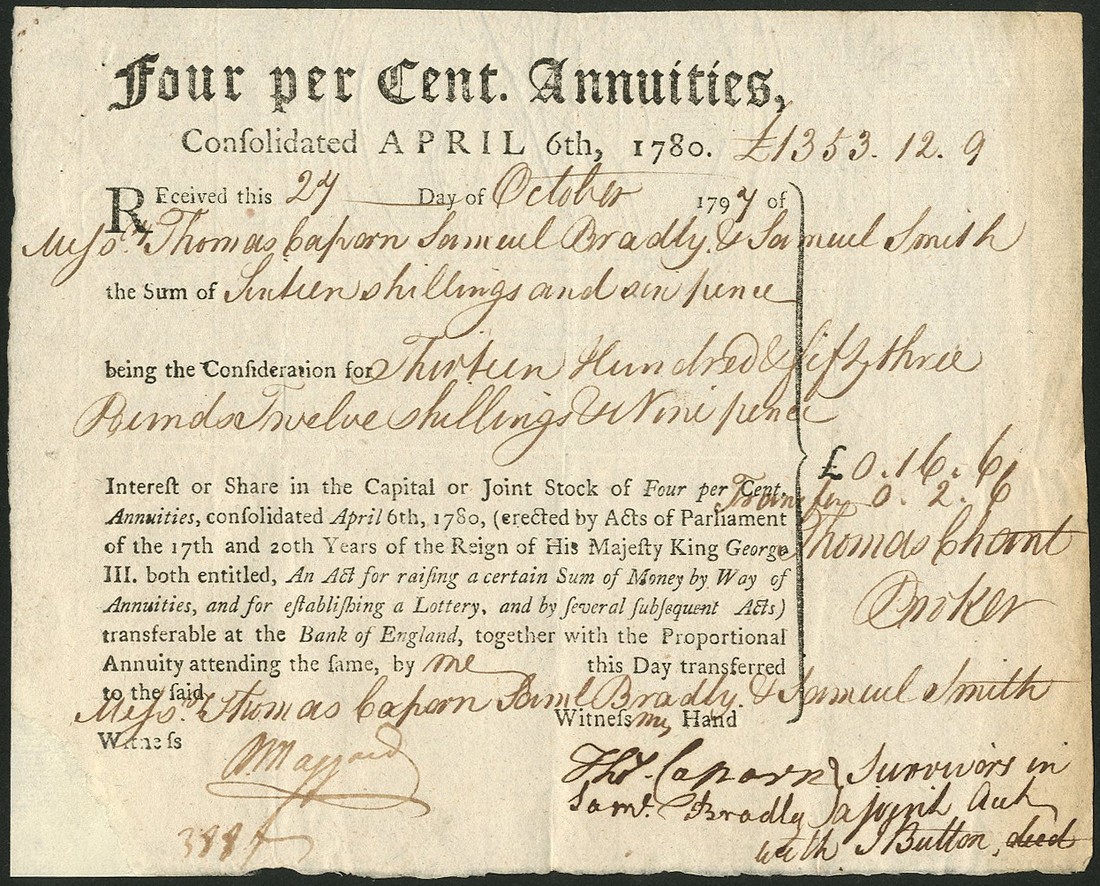 Four per Cent. Annuities,
Conſolidated APRIL 6th, 1780. £1353. 12. 9
REceived this 27 Day of October 1797 of
Meſsrs Thomas Caporn Samuel Bradly & Samuel Smith
the Sum of Sixteen shillings and six pence
being the Conſideration for Thirteen Hundred & fifty three
Pounds Twelve shillings & Nine pence
£0. 16. 6
Intereſt or Share in the Capital or Joint Stock of Four per Cent.
Transfer 0. 2. 6
Annuities, conſolidated April 6th, 1780, (erected by Acts of Parliament
of the 17th and 20th Years of the Reign of His Majeſty King George
Thomas Chant
III. both entitled, An Act for raiſing a certain Sum of Money by Way of
Annuities, and for eſtabliſhing a Lottery, and by ſeveral ſubſequent Acts)
Broker
transferable at the Bank of England, together with the Proportional
Annuity attending the ſame, by me this Day transferred
to the ſaid
Meſsrs Thomas Caporn Saml Bradly & Samuel Smith
Witneſs my Hand
Witneſs
Thos. Caporn Survivors in
Saml. Bradly a
with J Button, died
388